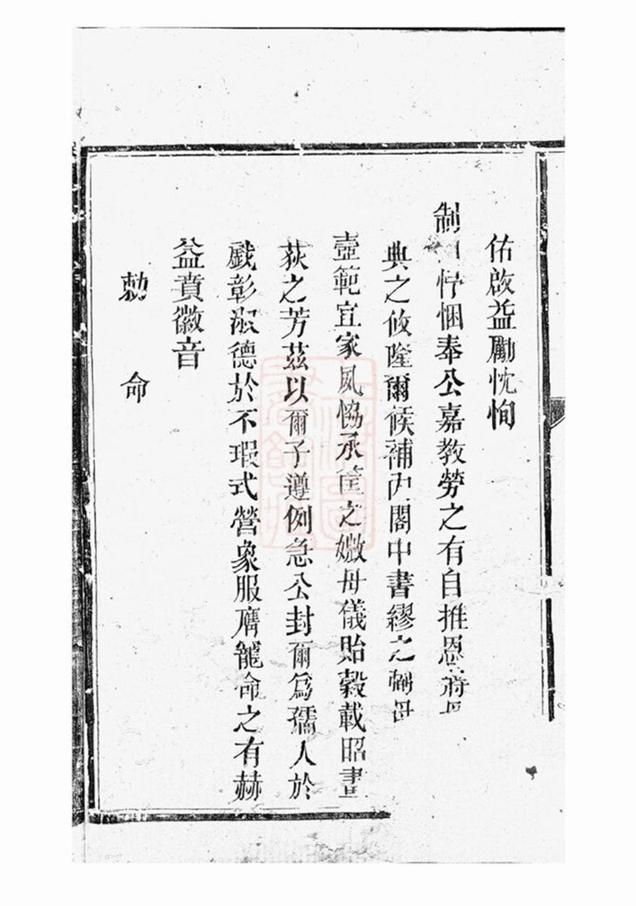 佑啟益勵忱恂
制曰悙悃奉公嘉教勞之有自推恩
典之攸隆爾候補內閣中書繆之弼母
壼範宜家夙恊承筐之媺母儀貽穀載昭畫
荻之芳茲以爾子遵例急公封爾爲孺人於
戲彰淑德於不瑕式營象服膺寵命之有赫
益賁徽音
勅命